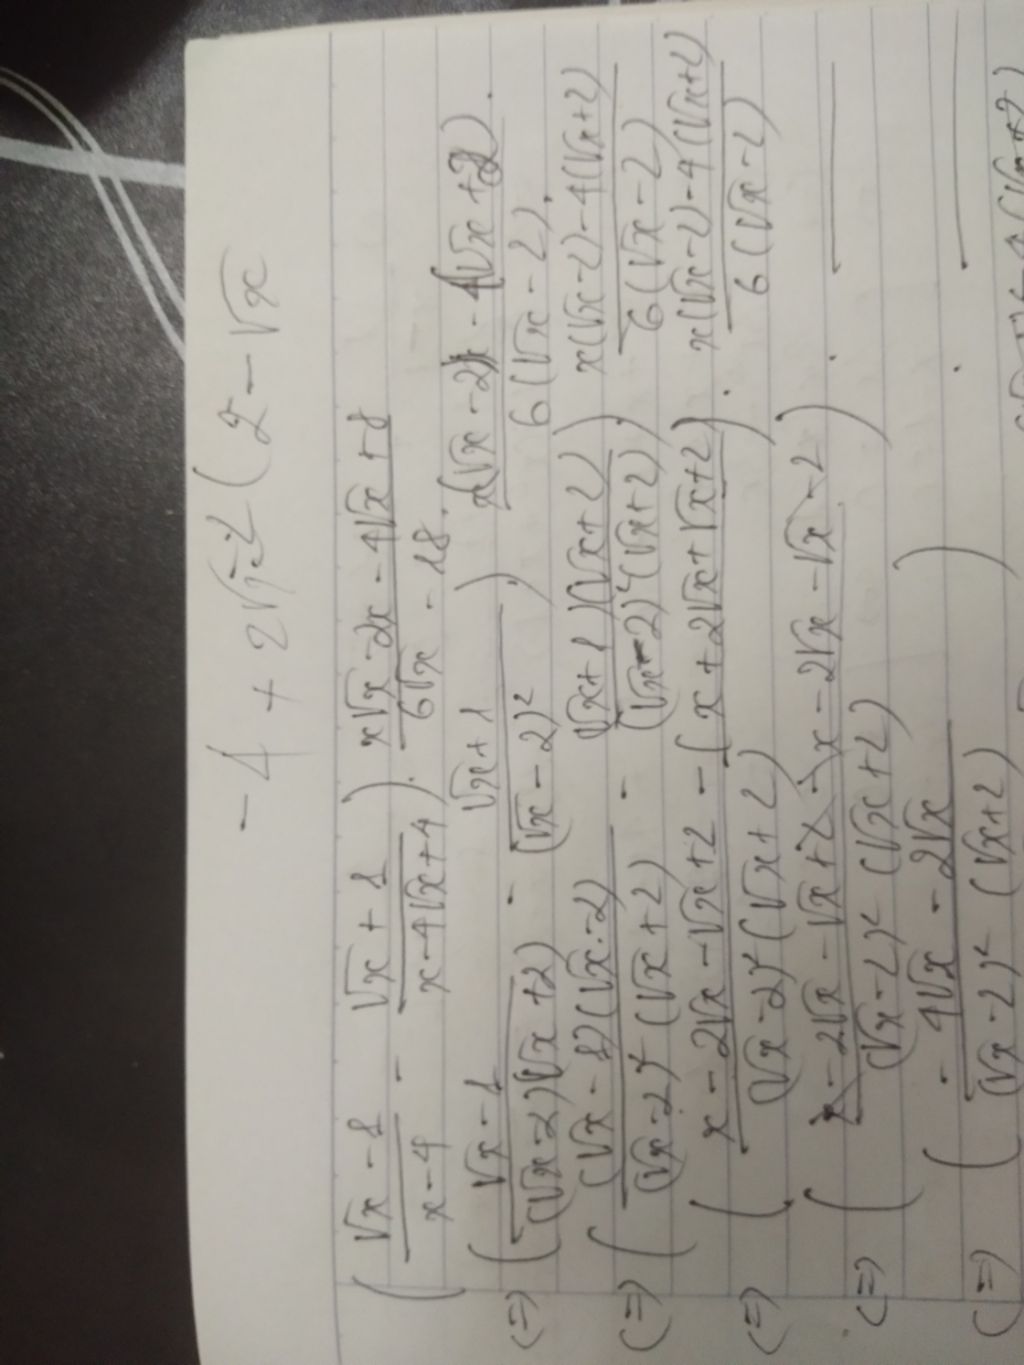 - 4 + 2√x-2 (2 - √x
( (√x - 1)/(x - 4) - (√x + 1)/(x - 4√x + 4) ) . (x√x - 2x - 4√x + 8)/(6√x - 18) .
(=) ( (√x - 1)/((√x - 2)(√x + 2)) - (√x + 1)/((√x - 2)²) ) . (x(√x - 2) - 4(√x + 2))/(6(√x - 2)) .
(=) ( ((√x - 1)(√x - 2))/((√x - 2)²(√x + 2)) - ((√x + 1)(√x + 2))/((√x - 2)²(√x + 2)) ) . (x(√x - 2) - 4(√x + 2))/(6(√x - 2))
(=) ( (x - 2√x - √x + 2 - (x + 2√x + √x + 2))/((√x - 2)²(√x + 2)) ) . (x(√x - 2) - 4(√x + 2))/(6(√x - 2))
(=) ( (x - 2√x - √x + 2 - x - 2√x - √x - 2)/((√x - 2)²(√x + 2)) ) .
(=) ( (- 4√x - 2√x)/((√x - 2)²(√x + 2)) ) .